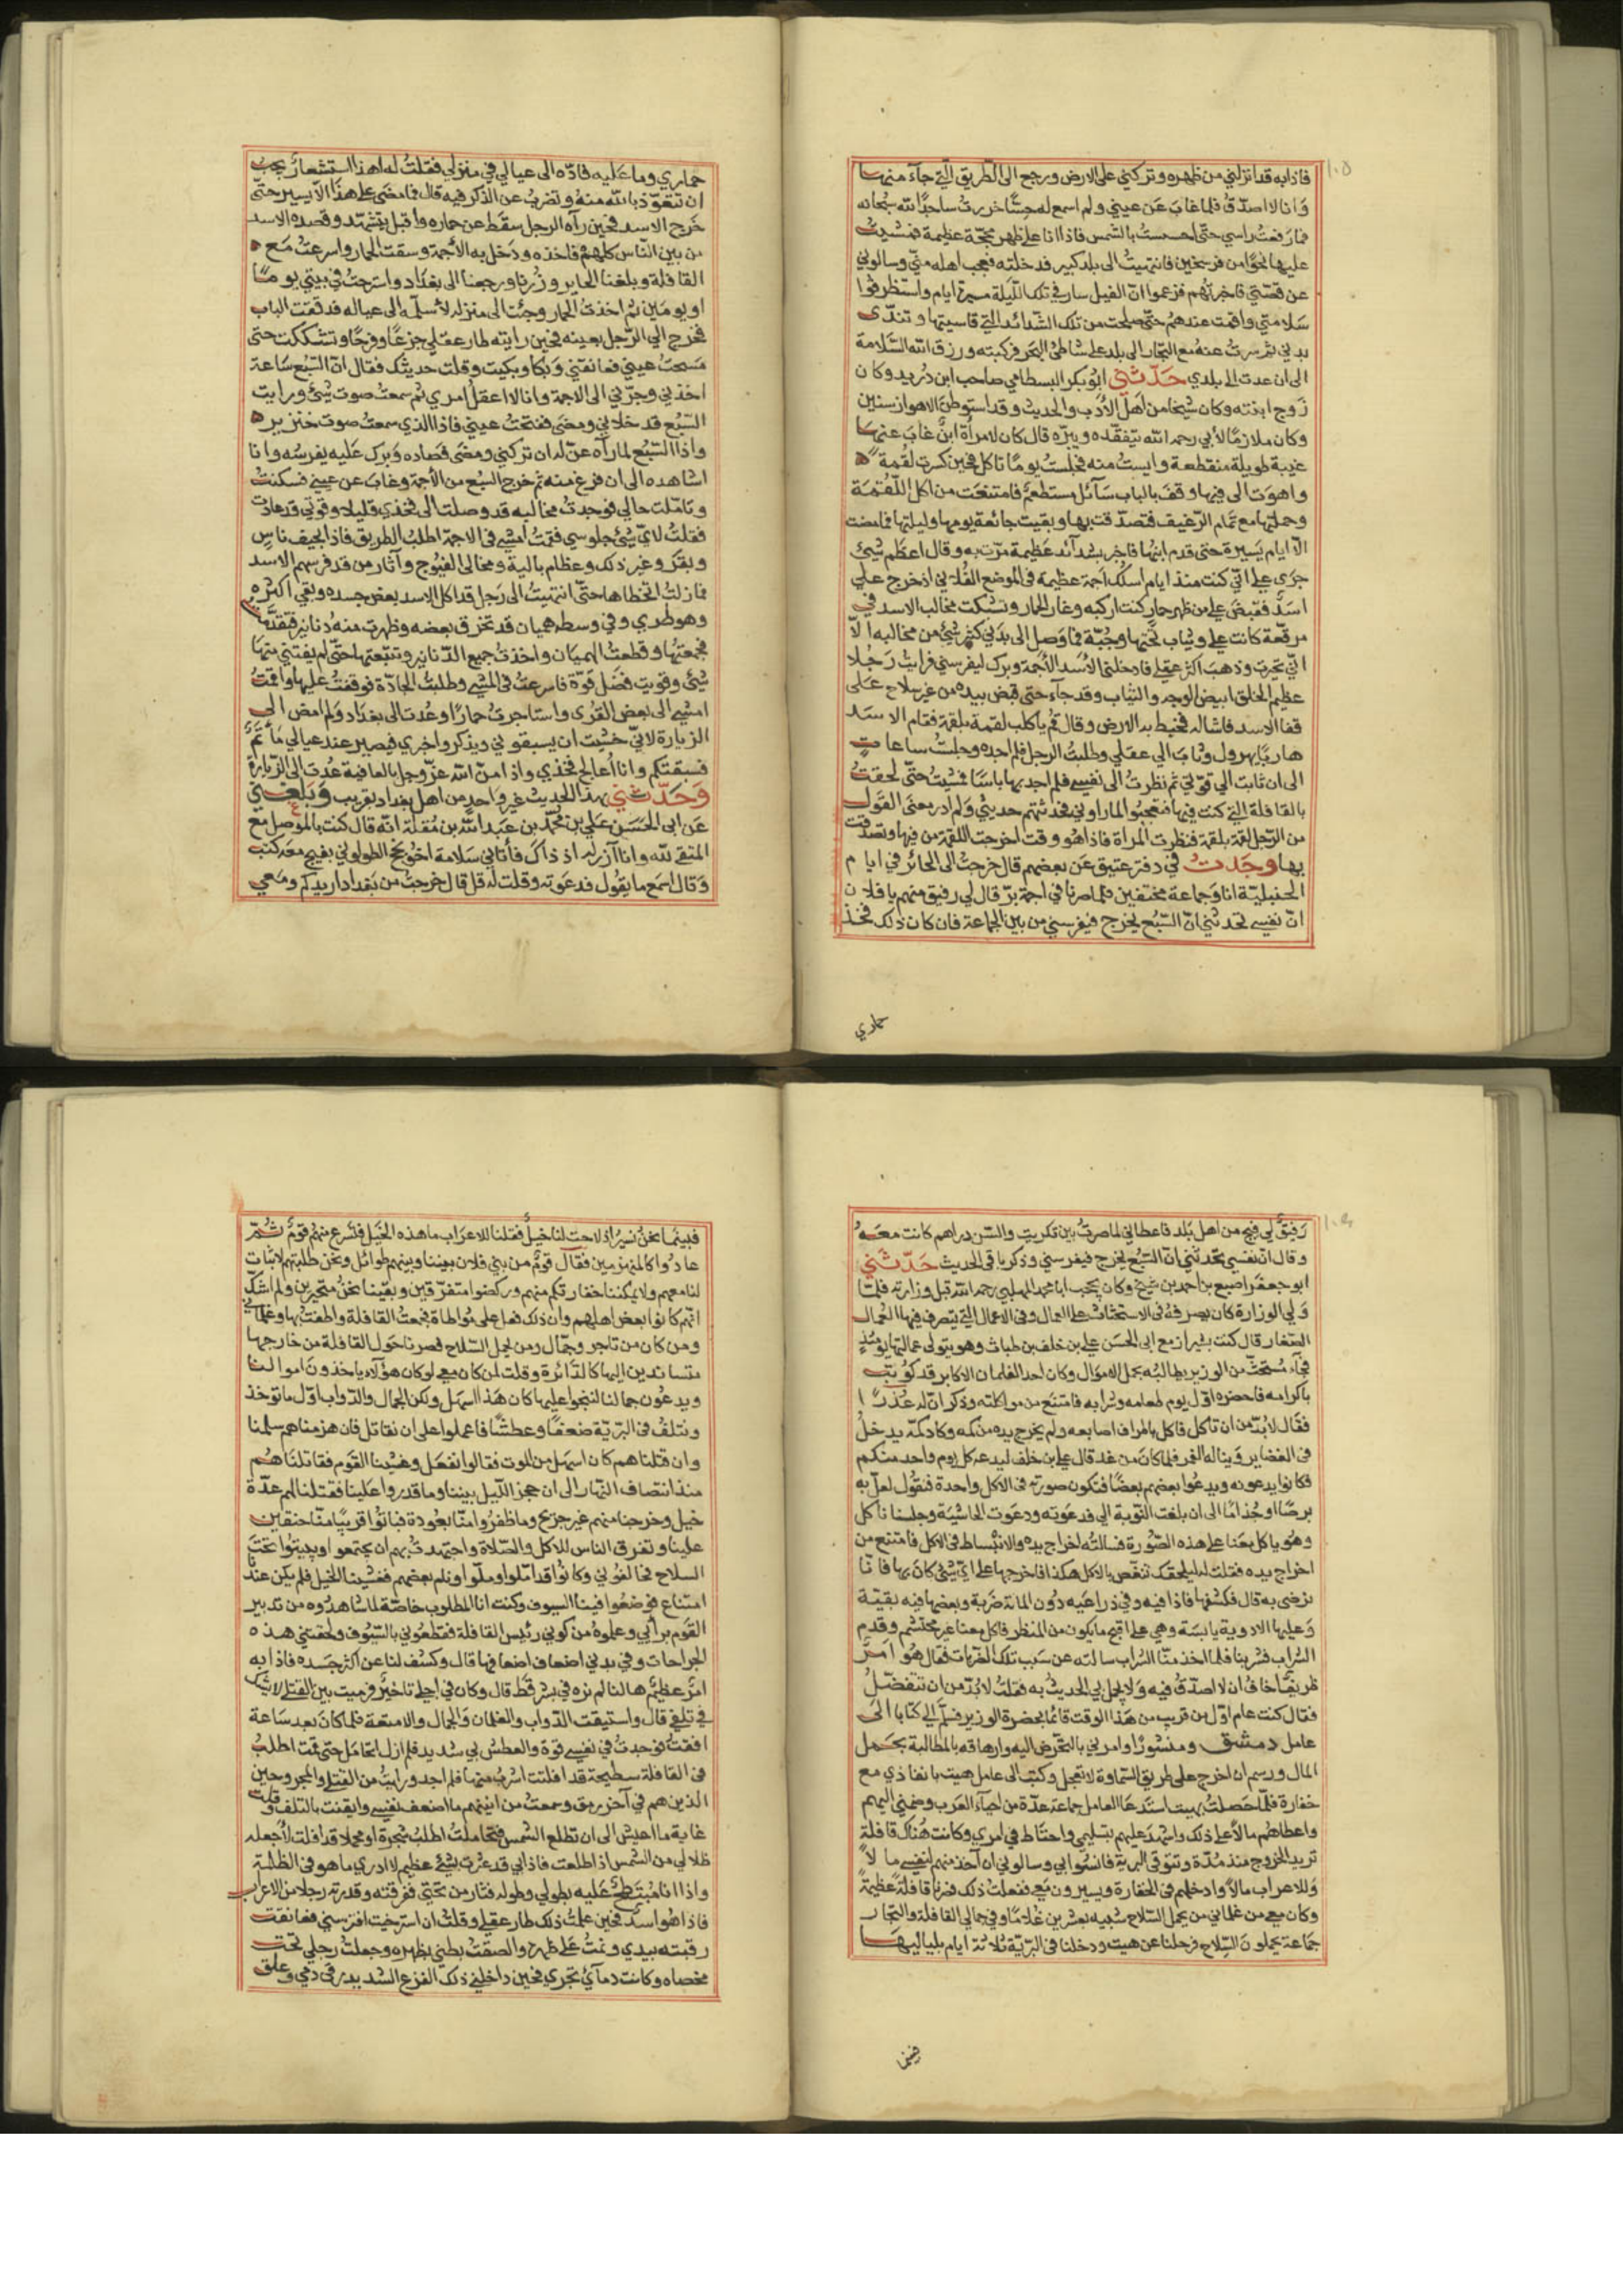 ١٠٥
فاذا به قد انزلني من ظهره وتركني على الارض ورجع الى الطريق التي جآء منها
وانا لا اصدّق فلما غاب عن عيني ولم اسمع له حسًّا خررت ساجدًا لله سبحانه
فما رفعت راسي حتى احسست بالشمس فاذا انا على ظهر محجّة عظيمة فمشيت
عليها نحوًا من فرسخين فانتهيت الى بلد كبير فدخلته فعجب اهله منّي وسالوني
عن قصّتي فاخبرتهم فزعموا انّ الفيل سار في تلك اللّيلة مسيرة ايام واستظرفوا
سلامتي واقمت عندهم حتى صلحت من تلك الشّدائد التي قاسيتها وتندّى
بدني ثم سرت عنه مع التجار الى بلد على شاطئ البحر فركبته ورزق الله السّلامة
الى ان عدت الى بلدي حدّثني ابو بكر البسطامي صاحب ابن دُريد وكان
زوج ابنته وكان شيخا من اهل الأدب والحديث وقد استوطن الاهواز سنين
وكان ملازمًا لأبي رحمه الله يتفقّده ويبرّه قال كان لامرأة ابنٌ غاب عنها
غيبة طويلة منقطعة وايست منه فجلست يومًا تاكل فحين كسرت لقمة
واهوت الى فيها وقف بالباب سآئل مستطعم فامتنعت من اكل اللّقمة
وحملتها مع تمام الرّغيف فتصدّقت بها وبقيت جائعة يومها وليلتها فما مضت
الّا ايام يسيرة حتى قدم ابنها فاخبر بشدآئد عظيمة مرّت به وقال اعظم شئ
جرى علي انّي كنت منذ ايام اسلك اجمة عظيمة في الموضع الفلاني اذ خرج علي
اسدٌ فقبض علي من ظهر حمار كنت اركبه وغار الحمار وتشكت مخالب الاسد في
مرقّعة كانت علي وثياب تحتها وجُبّة فما وصل الى بدني كثير شئ من مخالبه الّا
انّي تحيرت وذهب اكثر عقلي فادخلني الأسد الأجمة وبرك ليفرسني فرايت رجُلا
عظيم الخلق ابيض الوجه والثياب وقد جآء حتى قبض بيده من غير سلاح على
قفا الاسد فاشاله فخبط به الارض وقال قم يا كلب لقمة بلقمة فقام الاسد
هاربًا يهرول وثاب الي عقلي وطلبت الرجل فلم اجده وجلست ساعات
الى ان ثابت الي قوّتي ثم نظرت الى نفسي فلم اجد بها باسًا فمشيت حتى لحقت
بالقافلة التي كنت فيها فتعجبوا لما راوني فحدثتهم حديثي ولم ادر معنى القول
من الرّجل لقمة بلقمة فنظرت المرأة فاذا هو وقت اخرجت اللقمة من فيها وتصدقت
بها وجدت في دفتر عتيق عن بعضهم قال خرجت الى الحائر في ايام
الحنبليّة انا وجماعة مختفين فلما صرنا في اجمة برّ قال لي رفيق منهم يا فلان
انّ نفسي تحدثني انّ السّبُع يخرج فيفرسني من بين الجماعة فان كان ذلك فخذ
حماري
حماري وما عليه فادّه الى عيالي في منزلي فقلت له هذا استشعار يجب
ان تتعوّذ بالله منه وتضرب عن الذكر فيه قال فما مضى على هذا الّا يسير حتّى
خرج الاسد فحين رآه الرجل سقط عن حماره واقبل يتشهّد وقصده الاسد
من بين النّاس كلهم فاخذه ودخل به الأجمة وسقت الحمار واسرعت مع
القافلة وبلغنا الحاير وزُرنا ورجعنا الى بغداد واسترحت في بيتي يومًا
او يومين ثم اخذت الحمار وجئت الى منزله لأسلّمه الى عياله فدققت الباب
فخرج الي الرّجل بعينه فحين رايته طار عقلي جزعًا وفرحًا وتشككت حتى
مسحت عيني فعانقني وبكا وبكيت وقلت حديثك فقال انّ السّبُع ساعة
اخذني وجرّني الى الاجمة وانا لا اعقل امري ثم سمعت صوت شئ ورايت
السّبُع قد خلاني ومضى ففتحت عيني فاذا الذي سمعت صوت خنزير
واذا السّبُع لما رآه عنّ له ان تركني ومضى فصاده وبرك عليه يفرسُه وانا
اشاهده الى ان فرغ منه ثم خرج السّبُع من الأجمة وغاب عن عيني فسكنت
وتامّلت حالي فوجدت مخالبه قد وصلت الى فخذي قليلا وقوّتي قد عادت
فقلت لايّ شئ جلوسي فقمت امشي في الاجمة اطلب الطريق فاذا بجيف ناس
وبقر وغير ذلك وعظام بالية ومخالي الفيُوج وآثار من قد فرسهم الاسد
فما زلت اتخطاها حتى انتهيت الى رجل قد اكل الاسد بعض جسده وبقي اكثره
وهو طري وفي وسطه هميان قد تخزق بعضه وظهرت منه دنانير فتقدّمت
فجمعتها وقطعت الهميان واخذت جميع الدّنانير وتتبّعتها حتى لم يفتني منها
شئ وقويت فضل قوّة فاسرعت في المشي وطلبت الجادّة فوقفت عليها واقمت
امشي الى بعض القرى واستاجرت حمارًا وعُدت الى بغداد ولم امض الى
الزيارة لانّي خشيت ان يسبقوني ويذكروا خبري فيصير عند عيالي مأتمٌ
فسبقتكم وانا أعالج فخذي واذا منّ الله عزّ وجل بالعافية عُدت الى الزّيارة
وحدّثني بهذا الحديث غير واحد من اهل بغداد بقريب وبلغني
عن ابي الحسن علي بن محمّد بن عبد الله بن مُقلة انّه قال كنت بالموصل مع
المتقي لله وانا آزر له اذ ذاك فأتاني سلامة اخو نجح الطولوني بفيج معه كتب
وقال اسمع ما يقول فدعوته وقلت له قل قال خرجت من بغداد اريدكم ومعي
رفيقٌ لي فيج من اهل بلد فاعطاني لما صرت بين تكريت والسّن دراهم كانت معه
وقال انّ نفسي تحدّثني انّ السّبُع يخرج فيفرسني وذكر باقي الحديث حدّثني
ابو جعفر اصبع بن احمد بن شيخ وكان يحجب ابا محمد المهلبي رحمه الله قبل وزارته فلمّا
ولي الوزارة كان يصرفه في الاستحثاث على العمال وفي الاعمال التي يتصرف فيها العُمال
الصّغار قال كنت بشيراز مع ابي الحسن علي بن خلف بن طباث وهو يتولى عمالتها يومئذ
فجآء مُستحثّ من الوزير يطالبُه بحمل الاموال وكان احد الغلمان الاكابر قد كُوتب
باكرامه فاحضره اوّل يوم طعامه وشرابه فامتنع من مواكلته وذكر انّ له عذرًا
فقال لا بُدّ من ان تاكل فاكل باطراف اصابعه ولم يخرج يده من كمّه وكاد كمّه يدخل
في الغضاير ويناله الغمر فلما كان من غد قال علي بن خلف ليدعه كل يوم واحد منكم
فكانوا يدعونه ويدعوا بعضهم بعضًا فتكون صورته في الاكل واحدة فنقول لعلّ به
برصًا او جُذامًا الى ان بلغت النّوبة الي فدعوته ودعوت الحاشيّة وجلسنا ناكل
وهو ياكل معنا على هذه الصّورة فسالته اخراج يده والانبساط في الاكل فامتنع من
اخراج يده فقلت له يلحقك تنغص بالاكل هكذا فاخرجها على ايّ شئ كان بها فانّا
نرضى به قال فكشفها فاذا فيه وفي ذراعيه دُون الماية ضربة وبعضها فيه بقيّة
وعليها الادوية يابسة وهي على اقبح ما يكون من المنظر فاكل معنا غير محتشم وقدم
الشراب فشربنا فلما اخذ منّا الشراب سالته عن سبب تلك الضّربات فقال هو امرٌ
ظريف اخاف ان لا اصدّق فيه ولا يجمل بي الحديث به فقلت لا بُدّ من ان تتفضّل
فقال كنت عام اوّل من قريب من هذا الوقت قائما بحضرة الوزير فسلّم الي كتابا الى
عامل دمشق ومنشورًا وامرني بالتّعرض اليه وارهاقه بالمطالبة بحمل
المال ورسم ان اخرج على طريق السّماوة لاتعجل وكتب الى عامل هيت بانفاذي مع
خفارة فلمّا حصلت بهيت استدعا العامل جماعة عدّة من احيآء العرب وضمني اليهم
واعطاهم مالًا على ذلك واشهد عليهم بتسليمي واحتاط في امري وكانت هناك قافلة
تريد الخروج منذ مُدّة وتتوقى البريّة فانسوا بي وسالوني ان آخذ منهم لنفسي مالًا
وللاعراب مالًا وادخلهم في الخفارة ويسيرون معي ففعلت ذلك فصرنا قافلة عظيمة
وكان معي من غلماني من يحمل السّلاح شبيه بعشرين غُلامًا وفي حمالي القافلة والتجار
جماعة يحملون السّلاح فرحلنا عن هيت ودخلنا في البرّيّة ثلاثة ايام بلياليها
فبينما
فبينما نحن نسير اذ لاحت لنا خيلٌ فقلنا للاعراب ما هذه الخيل فسرع منهم قومٌ ثُمّ
عادُوا كالمنهزمين فقال قومٌ من بني فلان بيننا وبينهم طوائل ونحن طلبتهم لاثبات
لنا معهم ولا يمكننا خفارتكم منهم وركضوا متفرّقين وبقينا نحن متحيّرين ولم اشكّ
انّهم كانوا بعض اهلهم وان ذلك فعل على مُواطاة فجمعت القافلة واطفت بها وغلماني
ومن كان من تاجر وجمّال ومن يحمل السّلاح فصرنا حول القافلة من خارجها
متساندين اليها كالدّائرة وقلت لمن كان معي لو كان هؤلآء ياخذون اموالنا
ويدعُون جمالنا لننجوا عليها كان هذا اسهل ولكن الجمال والدّواب اوّل ما توخذ
ونتلف في البرّيّة ضعفًا وعطشًا فاعملوا على ان نقاتل فان هزمناهم سلمنا
وان قتلنا هم كان اسهل من الموت فقالوا نفعل وغشينا القوم فقاتلناهم
منذ انتصاف النّهار الى ان حجز اللّيل بيننا وما قدروا علينا فقتلنا لهم عدّة
خيل وخرجنا منهم غير جريح وما ظفرُوا منّا بعُودة فباتُوا قريبًا منّا حنقين
علينا وتفرق الناس للاكل والصّلاة واجتهدت بهم ان يجتمعو او يبيتوا تحت
السلاح فخالفوني وكانُوا قد املّوا وملّوا ونام بعضهم فغشينا الخيل فلم يكن عندنا
امتناع فوضعُوا فينا السيوف وكنت انا المطلوب خاصّة لما شاهدُوه من تدبير
القوم برايي وعلموهُ من كوني رئيس القافلة فقطعوني بالسّيُوف ولحقتني هذه
الجراحات وفي بدني اضعاف اضعافها قال وكشف لنا عن اكثر جسده فاذا به
امرٌ عظيم هالنا لم نره في بشر قط قال وكان في اجلي تاخيرٌ فرميت بين القتلى لا يشك
في تلفي قال واستيقت الدّواب والغلمان والجمال والامتعة فلما كان بعد ساعة
افقت فوجدت في نفسي قوة والعطش بي شديد فلم ازل اتحامل حتى قمت اطلب
في القافلة سطيحة قد افلتت اشرب منها فلم اجد ورايت من القتلى والمجروحين
الذين هم في آخر رمق وسمعت من انينهم ما اضعف نفسي وايقنت بالتلف وقلت
غاية ما اعيش الى ان تطلع الشمس فتحاملت اطلب شجرة او محملا قد افلت لأجعله
ظلا لي من الشمس اذا طلعت فاذا بي قد عثرت بشئ عظيم لا ادري ما هو في الظلمة
واذا انا مُنبطح عليه بطولي وطوله فثار من تحتي ففرقته وقدرته رجلا من الاعراب
فاذا هو اسدٌ فحين علمت ذلك طار عقلي وقلت ان استرخيت افترسني فعانقت
رقبته بيدي ونمت على ظهره والصقت بطني بظهره وجعلت رجلي تحت
مخصاه وكانت دمآئ تجري فحين داخلني ذلك الفزع الشديد رقى دمي وعلق